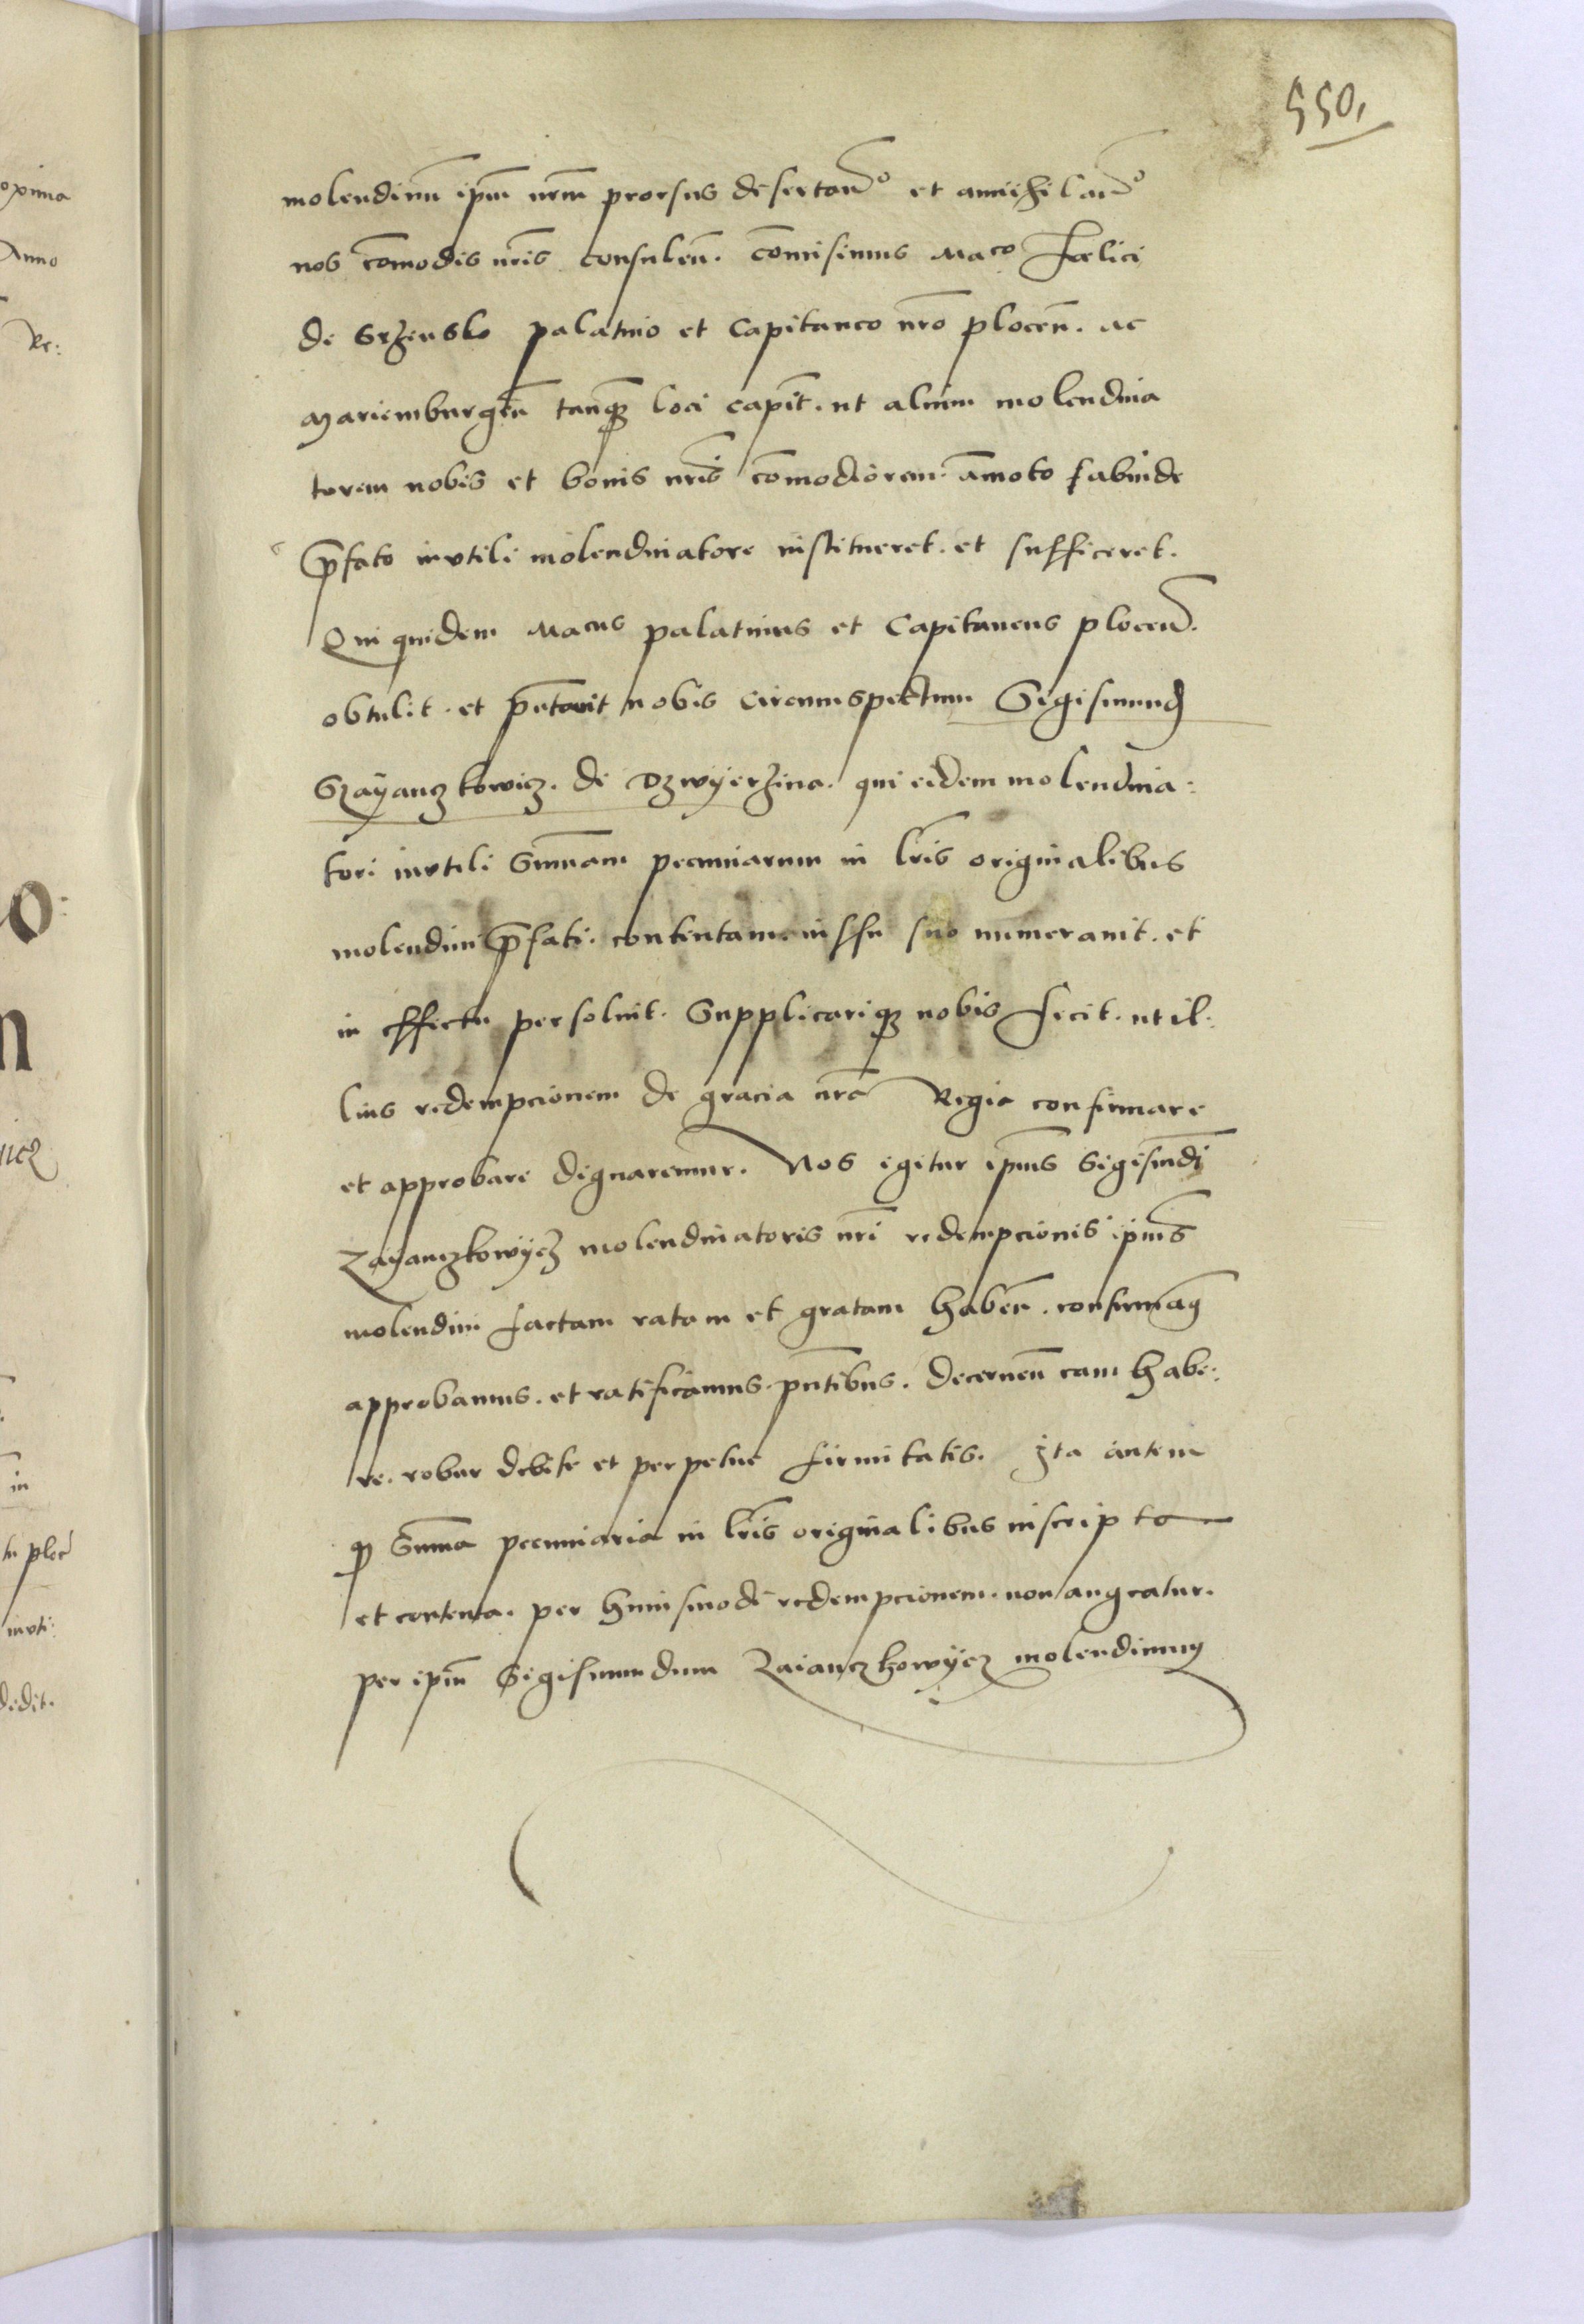 550.
molendinũ ipm̃ nr̃m prorsus desertanđ et annichilanđ
nos cõmodis nr̃is consuleñ. cõmisimus Maco Felici
de Srzensko palatino et Capitaneo nr̃o ploceñ. ac
Mariemburgeñ tanq̃ loci capit̃. ut alium molendina
torem nobis et bonis nr̃is cõmodiorem. amoto
p̃fato inutili molendinatore institueret. et sufficeret.
Qui quidem Macus palatinus et Capitaneus ploceñ.
obtulit. et p̃ntavit nobis circumspectum Sigismund
Szayanczkowicz. de Dzwyerzina. qui eidem molendina:
tori inutili Sum̃am pecuniarum in lr̃is originalibus
molendini p̃fati. contentam. in suo numeravit. et
in effectu persolvit. Supplicariq̃ nobis fecit. ut il:
lius redempcionem de gracia nr̃a Regia confirmare
et approbare dignaremur. Nos igitur ipius Sigismdi
Zayanczkowycz molendinatoris nr̃i redempcionis ipius
molendini factam ratam et gratam habeñ. confirmãq
approbamus. et ratificamus. pñtibus. decerneñ eam habe:
re. robur debite et perpetue firmitatis. Ita autem
q̃ Sum̃a pecuniaria in lr̃is originalibus inscripta
et contenta. per huiusmodi redempcionem. non augeatur.
per ipm̃ Sigismundum Zaianczkowycz molendinum
oxima
Anno
Re:
o:
m
icz
in
in ploc
inuti:
dedit.